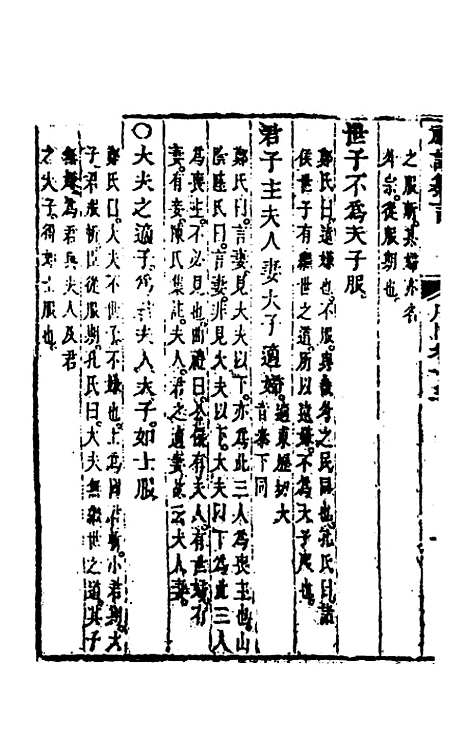 之服斬其婦亦名
為宗從服期也
世子不為天子服
鄭氏曰遠嫌也不服與畿外之民同也孔氏曰諸
侯世子有繼世之道所以遠嫌不為天子服也
君子主夫人妻大子適婦
鄭氏曰言妻見大夫以下亦為此三人為喪主也山
陰陸氏曰言妻見大夫以下大夫以下為此三人
為喪主不必見也曲禮曰公侯有夫人有世婦有
妻有妾陳氏集註夫人君之適妻故云夫人妻
○大夫之適子為君夫人大子如士服
鄭氏曰大夫不世子不嫌也士為國君斬小君期大
子君服斬臣從服期孔氏曰大夫無繼世之道其子
無嫌為君與夫人及君
之大子得如士服也